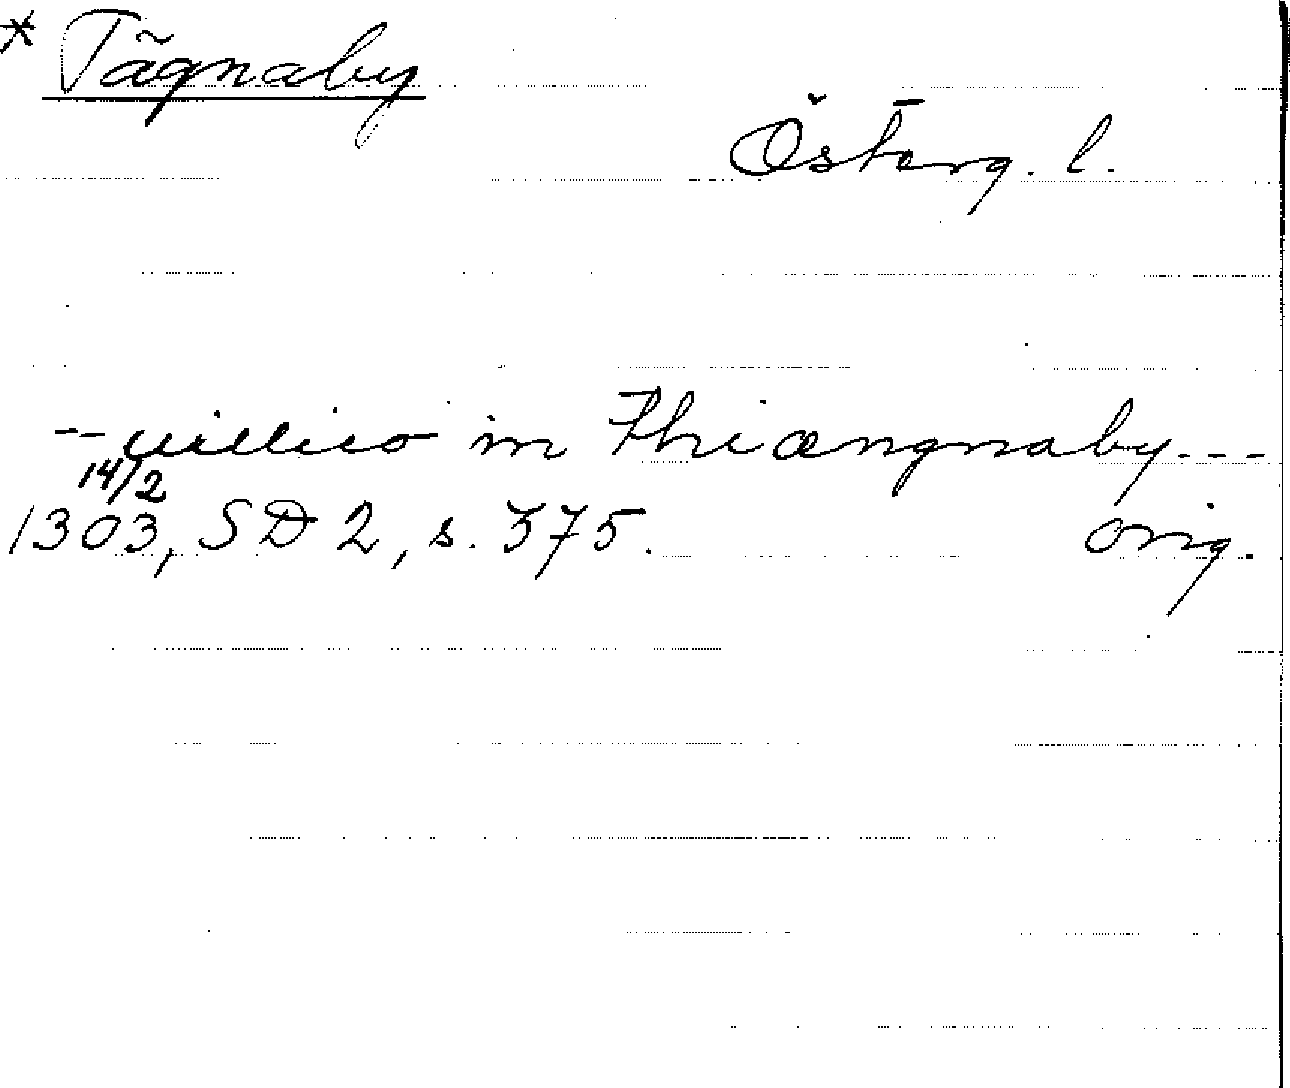 * Tägnaby
Österg. l.
--uillico in Thiængnaby---
14/2
1303, SD 2, s. 375. orig.